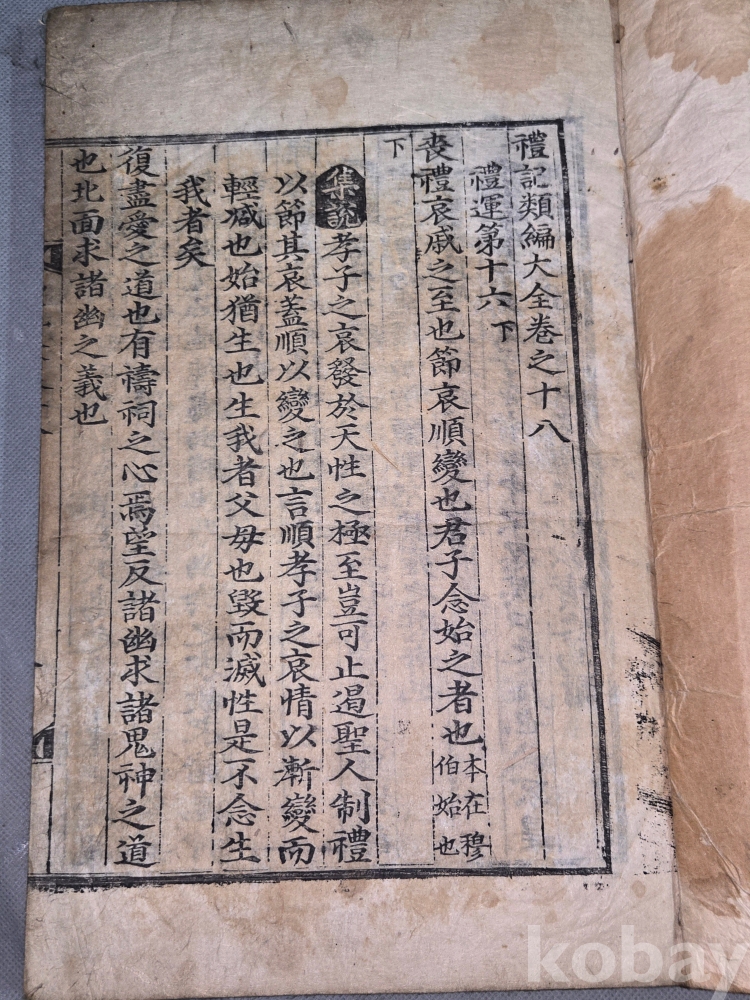 禮記類編大全卷之十八
禮運第十六 下
喪禮哀戚之至也節哀順變也君子念始之者也 本在穆伯始也
下
集說 孝子之哀發於天性之極至豈可止遏聖人制禮
以節其哀蓋順以變之也言順孝子之哀情以漸變而
輕减也始猶生也生我者父母也毀而滅性是不念生
我者矣
復盡愛之道也有禱祠之心焉望反諸幽求諸鬼神之道
也北面求諸幽之義也
kobay